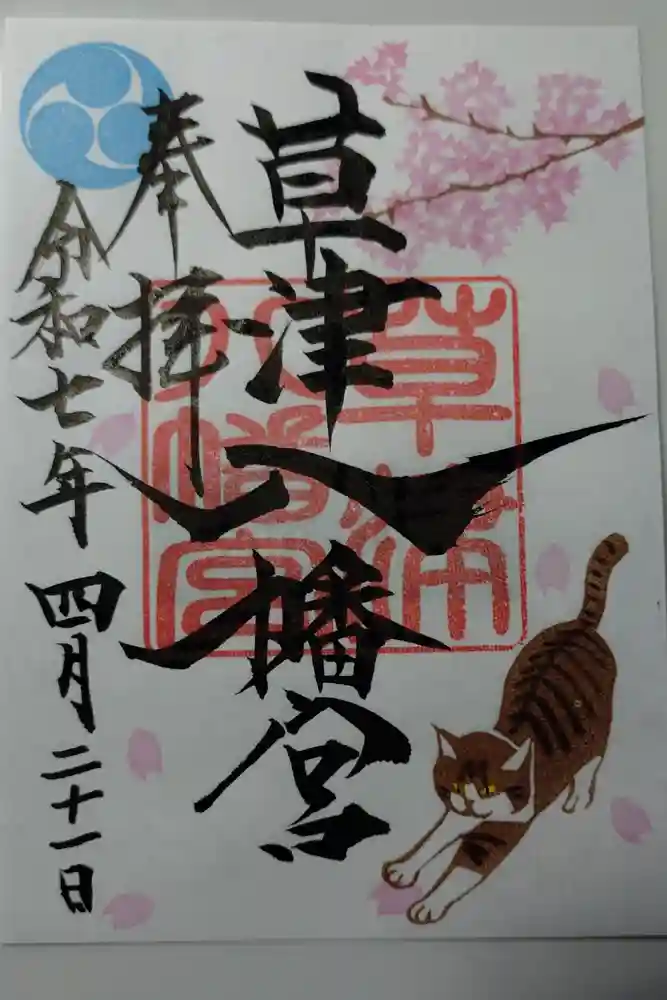 草津八幡宮
奉拝
令和七年四月二十一日
草津八幡宮